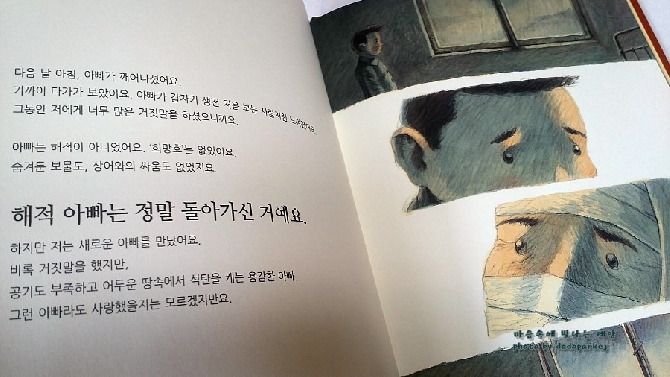 다음 날 아침, 아빠가 깨어나셨어요.
가까이 다가가 보았어요. 아빠가 갑자기 생전 처음 보는 사람처럼
그동안 저에게 너무 많은 거짓말을 하셨으니까요.
아빠는 해적이 아니었어요. '희망호'는 없었어요.
숨겨둔 보물도, 상어와의 싸움도 없었지요.
해적 아빠는 정말 돌아가신 거예요.
하지만 저는 새로운 아빠를 만났어요.
비록 거짓말을 했지만,
공기도 부족하고 어두운 땅속에서 석탄을 캐는 용감한 아빠.
그런 아빠라도 사랑했을지는 모르겠지만요.
마음속에 빛나는 예안
photo by dodopankey